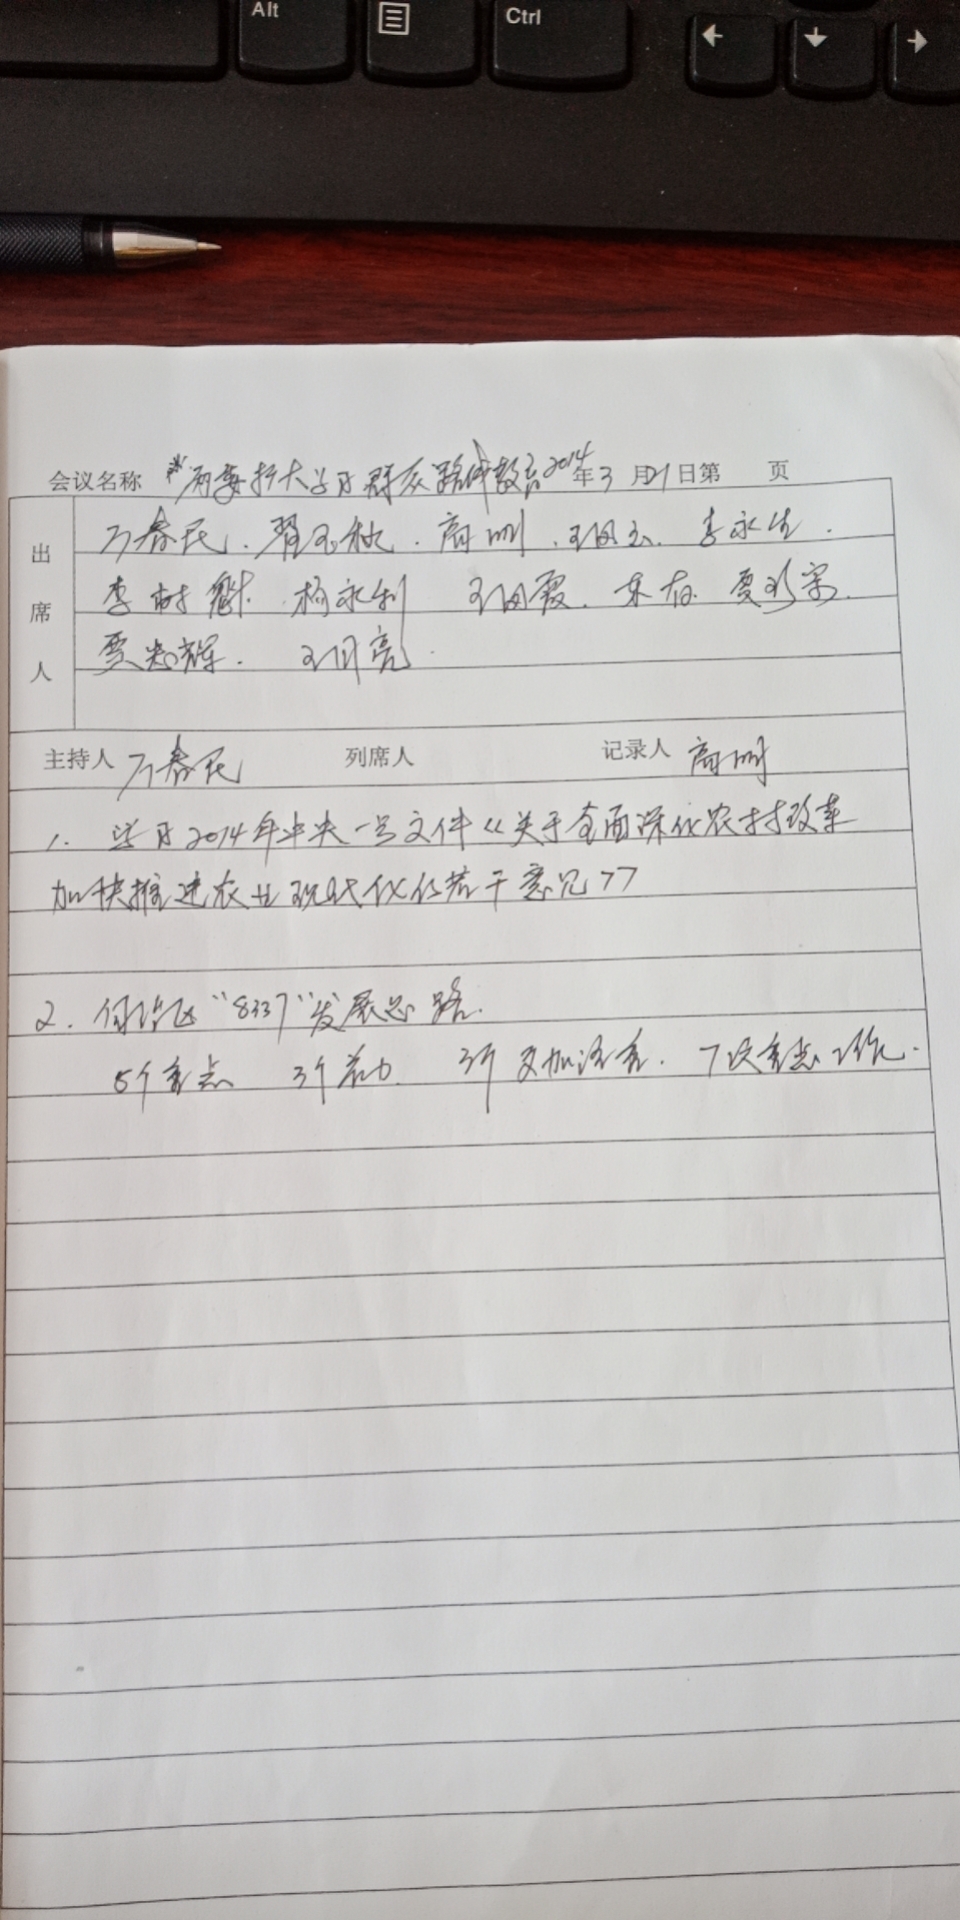 Alt Ctrl
会议名称 两委扩大学习群众路线教育2014年3月21日第 页
出席人
春民、翟玉秋、高明、李永生、
李树魁 杨永利 霞、贾彩
贾志辉、王明亮
主持人 春民 列席人 记录人 高明
1、学习2014年中央一号文件《关于全面深化农村改革
加快推进农业现代化的若干意见》
2、自治区"8337"发展思路、
5个重点 3个着力 3个更加注重、7次重点工作、